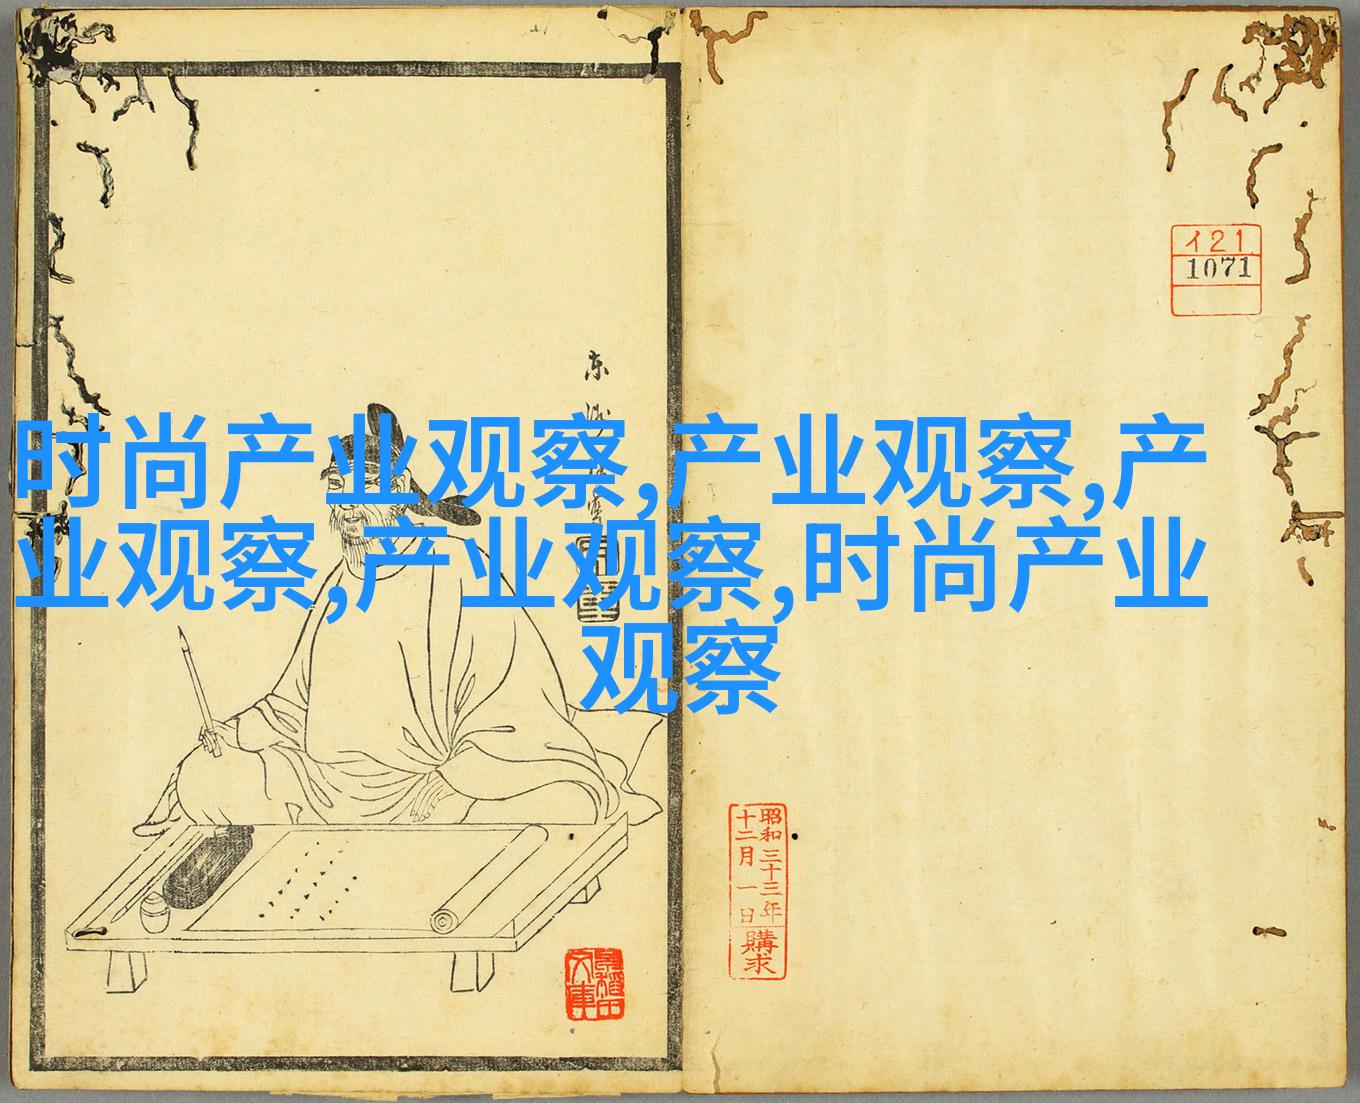 时尚产业观察,产业观察,产
业观察,产业观察,时尚产业
观察
イ21
1071
昭和三十三年
十二月一日
購求